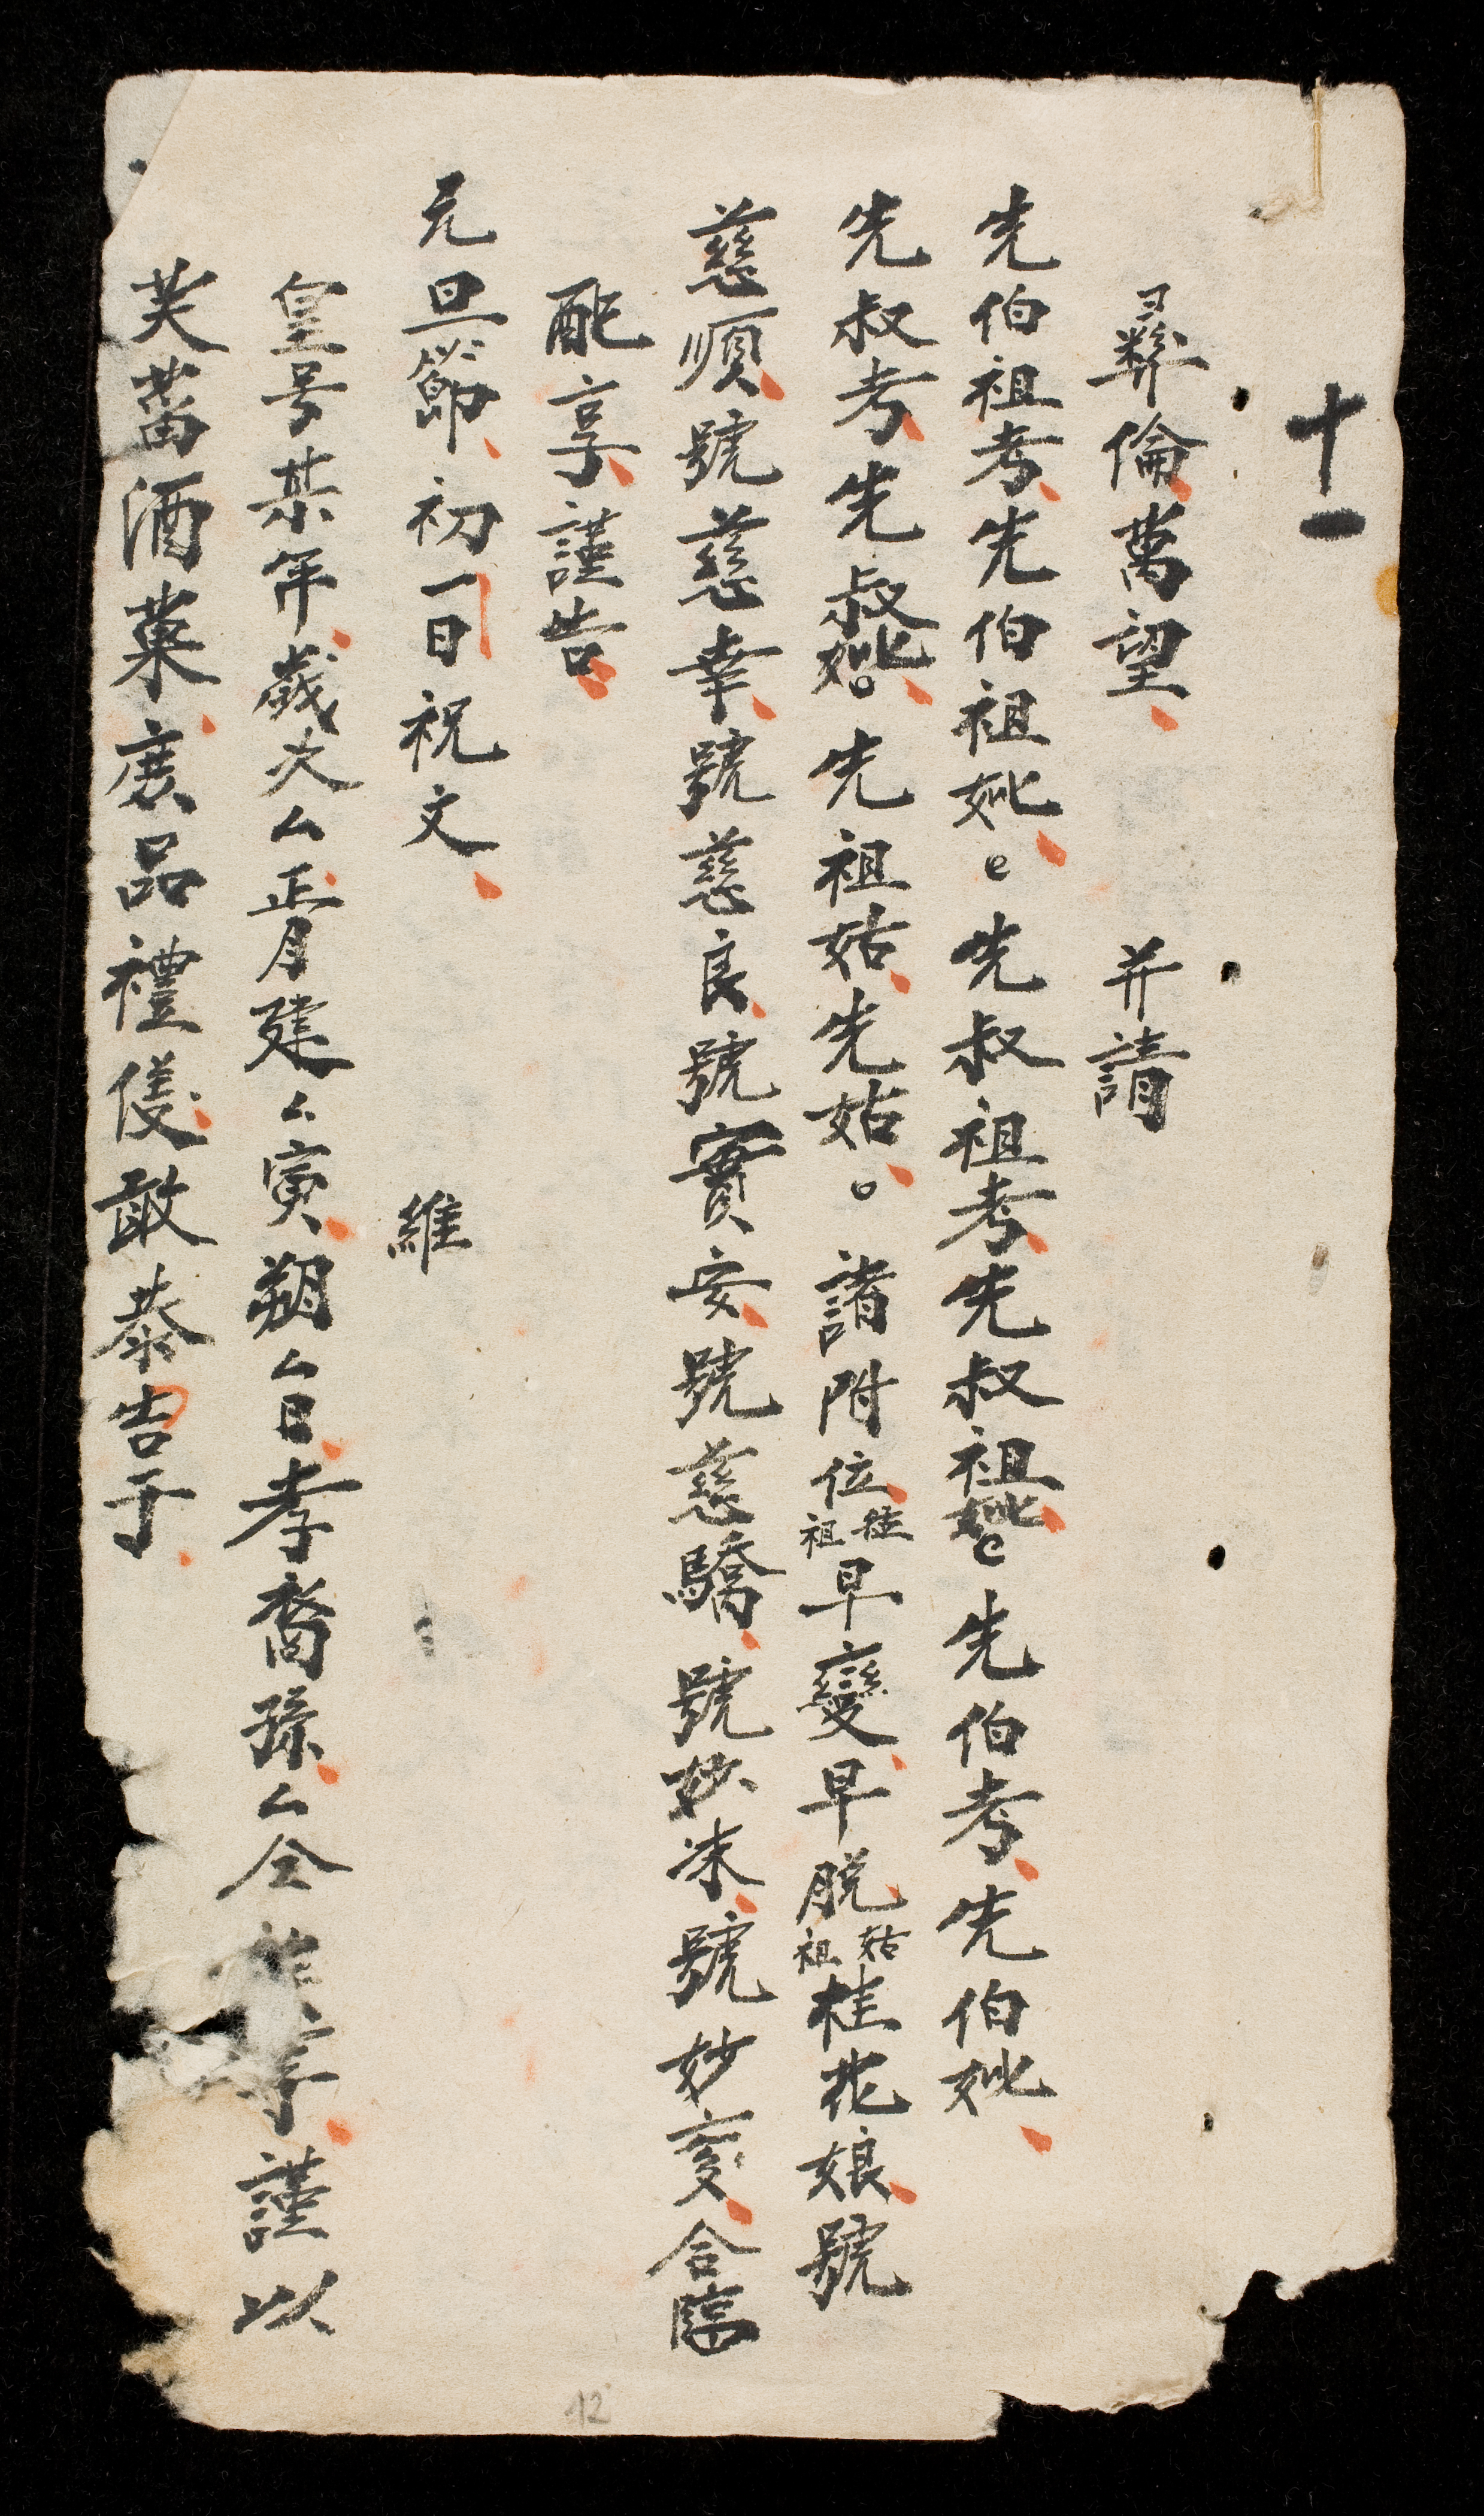 十一
彛倫萬望 并請
先伯祖考先伯祖妣。先叔祖考先叔祖妣。先伯考先伯妣
先叔考先叔妣。先祖姑先姑。諸附位祖徃早變早脱祖姑桂花娘號
慈順號慈幸號慈良號實安號慈驕號妙洡號妙変合臨
配享謹告
元旦節初一日祝文 維
皇号某年歲次厶正月建厶寅朔厶日孝裔孫厶仝 享謹以
芙蒥酒菓庶品禮儀敢恭告于
12